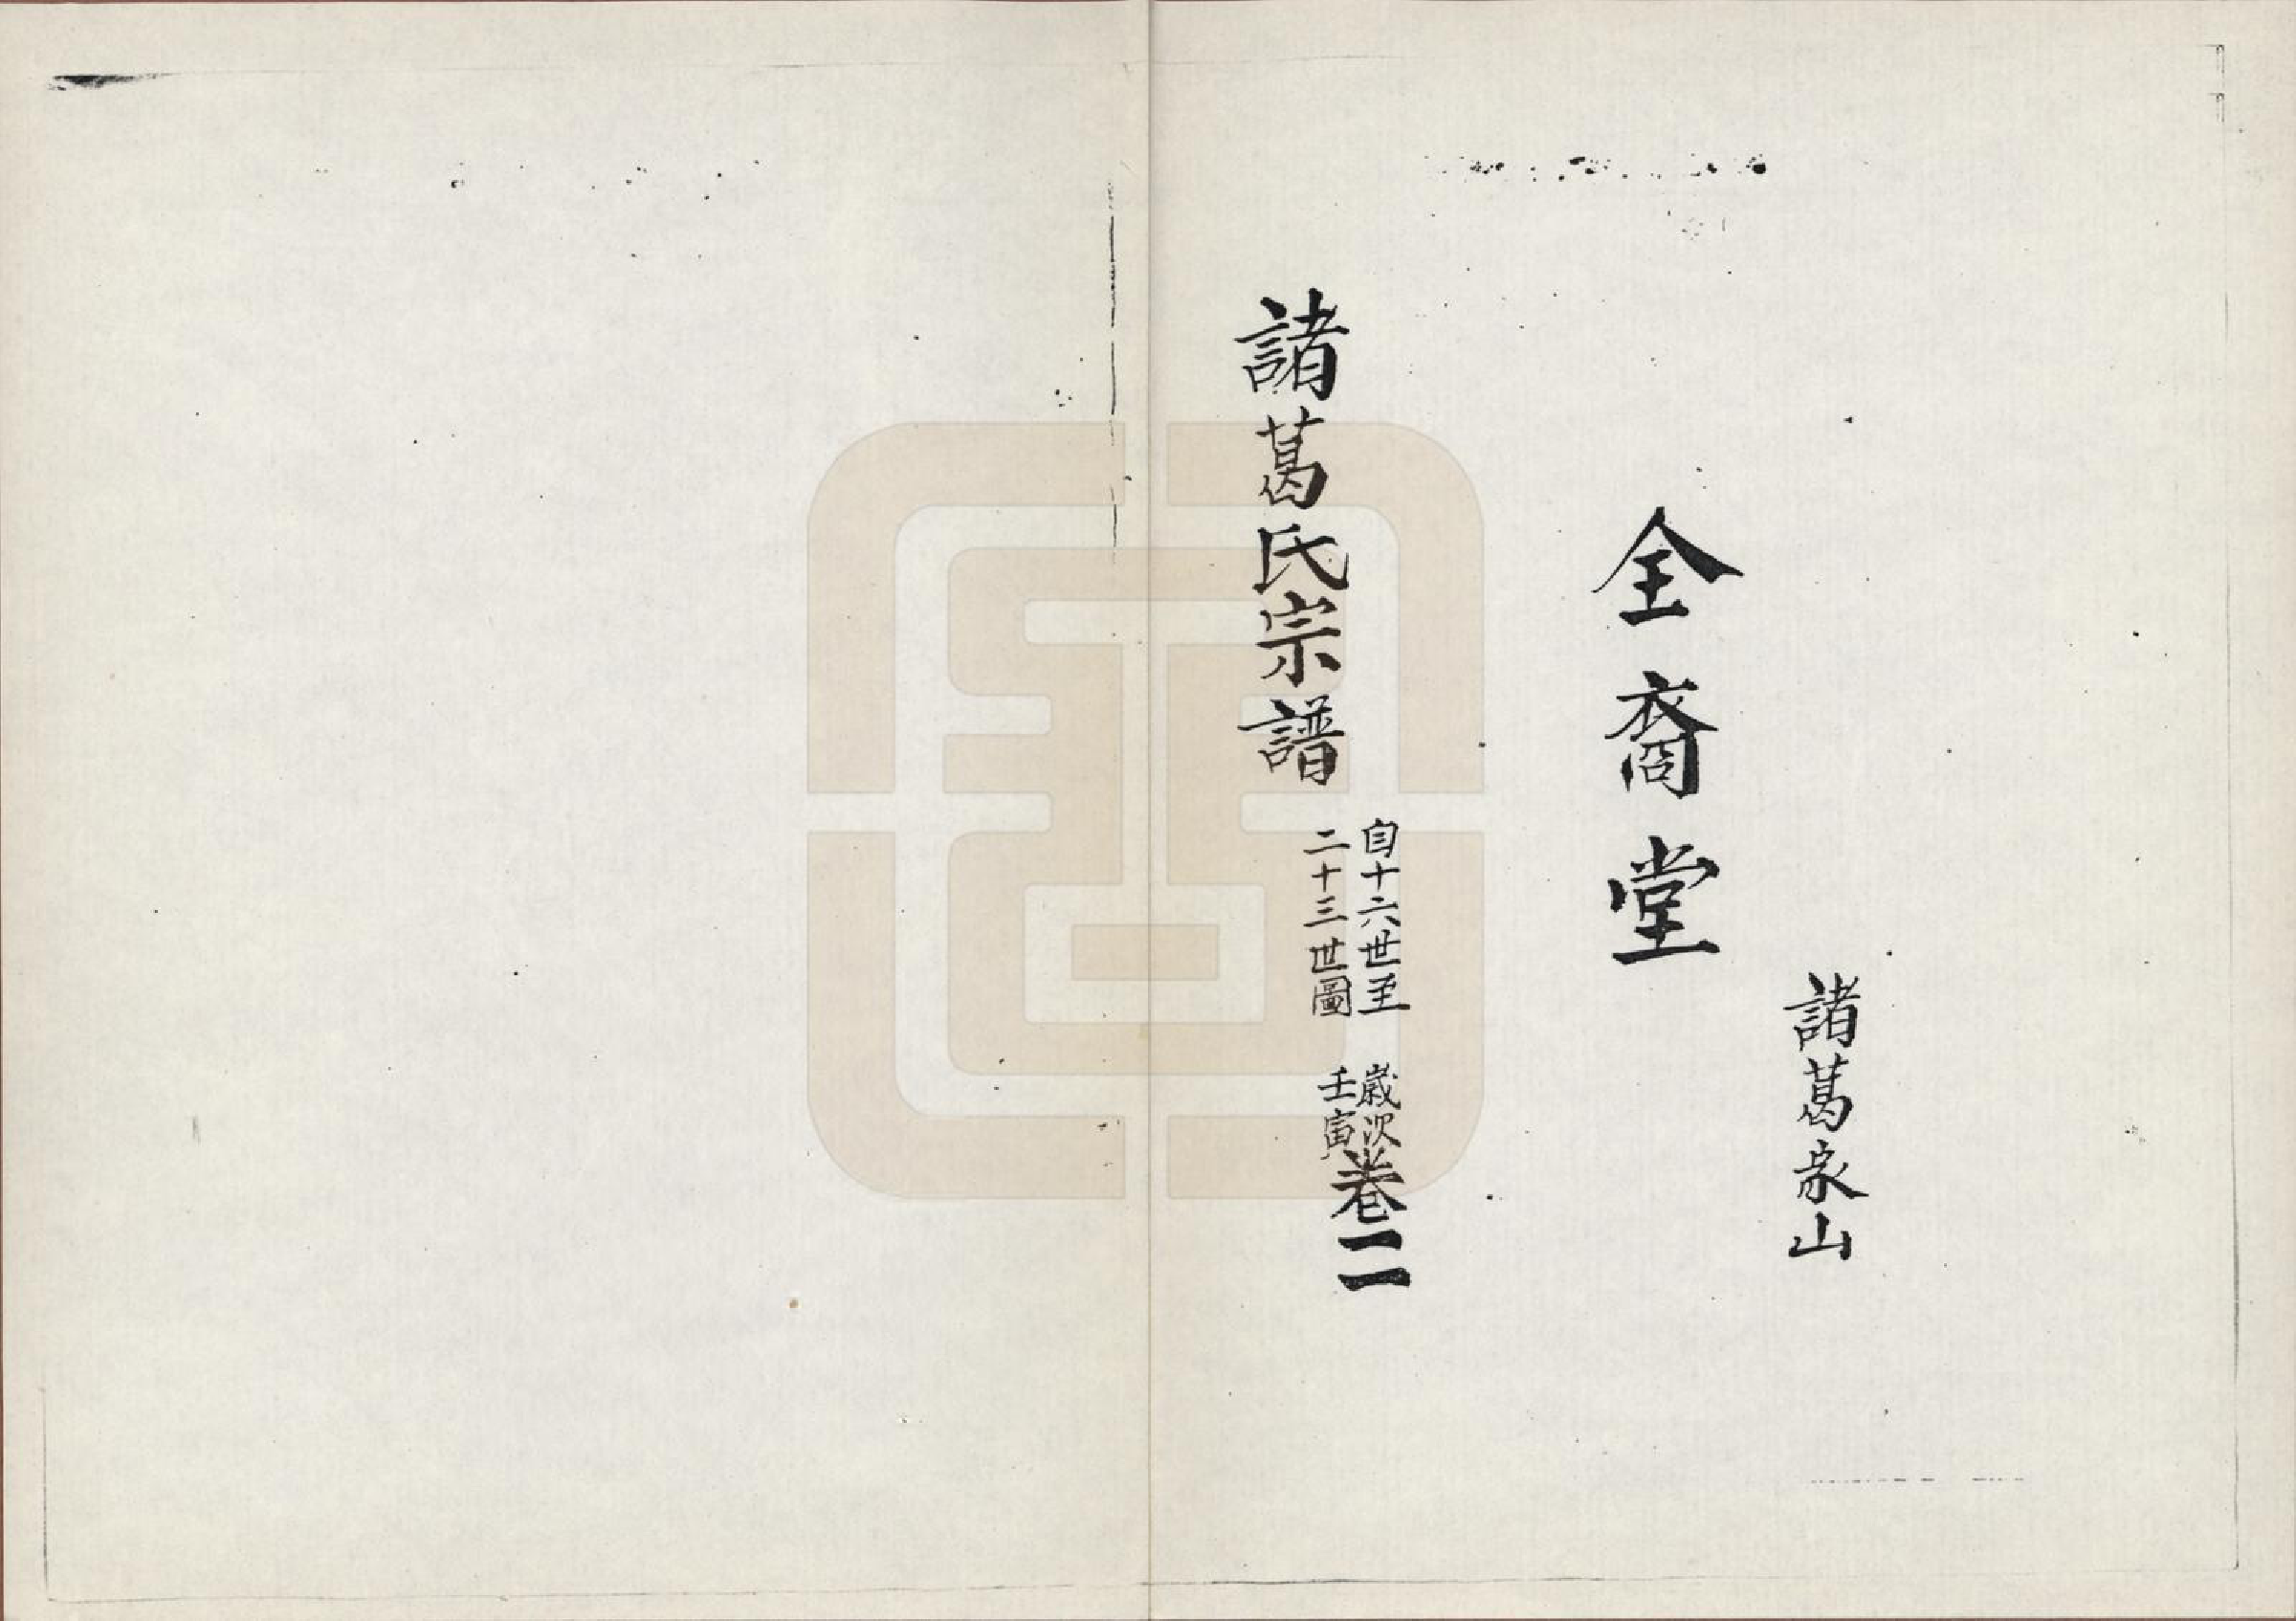 諸葛家山
全裔堂
諸葛氏宗譜
自十六世至
二十三世圖
歲次
壬寅
卷二